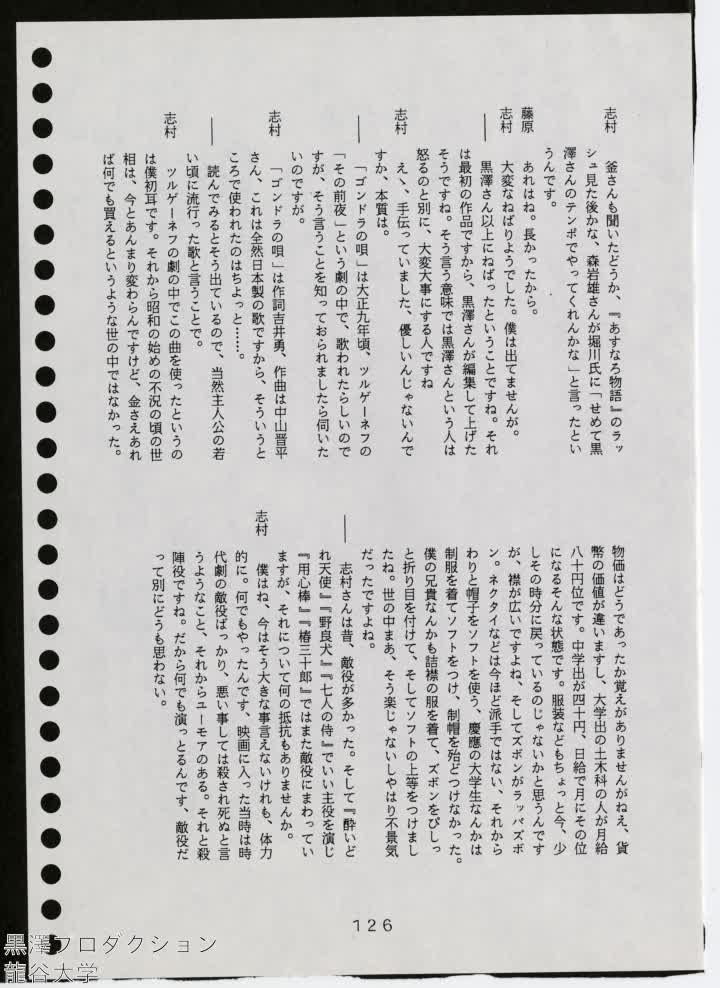 志村
釜さんも聞いたどうか、『あすなろ物語』のラッ
シュ見た後かな、森岩雄さんが堀川氏に「せめて黒
澤さんのテンポでやってくれんかな」と言ったとい
うんです。
藤原
あれはね。長かったから。
志村
大変なねばりようでした。僕は出てませんが。
――
黒澤さん以上にねばったということですね。それ
は最初の作品ですから、黒澤さんが編集して上げた
そうですね。そう言う意味では黒澤さんという人は
怒るのと別に、大変大事にする人ですね
志村
えゝ、手伝っていました、優しいんじゃないんで
すか、本質は。
――
「ゴンドラの唄」は大正九年頃、ツルゲーネフの
「その前夜」という劇の中で、歌われたらしいので
すが、そう言うことを知っておられましたら伺いた
いのですが。
志村
「ゴンドラの唄」は作詞吉井勇、作曲は中山晋平
さん、これは全然日本製の歌ですから、そういうと
ころで使われたのはちょっと……。
――
読んでみるとそう出ているので、当然主人公の若
い頃に流行った歌と言うことで。
志村
ツルゲーネフの劇の中でこの曲を使ったというの
は僕初耳です。それから昭和の始めの不況の頃の世
相は、今とあんまり変わらんですけど、金さえあれ
ば何でも買えるというような世の中ではなかった。
物価はどうであったか覚えがありませんがねえ、貨
幣の価値が違いますし、大学出の土木科の人が月給
八十円位です。中学出が四十円、日給で月にその位
になるそんな状態です。服装などもちょっと今、少
しその時分に戻っているのじゃないかと思うんです
が、襟が広いですよね、そしてズボンがラッパズボ
ン。ネクタイなどは今ほど派手ではない、それから
わりと帽子をソフトを使う、慶應の大学生なんかは
制服を着てソフトをつけ、制帽を殆どつけなかった。
僕の兄貴なんかも詰襟の服を着て、ズボンをびしっ
と折り目を付けて、そしてソフトの上等をつけまし
たね。世の中まあ、そう楽じゃないしやはり不景気
だったですよね。
――
志村さんは昔、敵役が多かった。そして『酔いど
れ天使』『野良犬』『七人の侍』でいい主役を演じ
『用心棒』『椿三十郎』ではまた敵役にまわってい
ますが、それについて何の抵抗もありませんか。
志村
僕はね、今はそう大きな事言えないけれも、体力
的に。何でもやったんです、映画に入った当時は時
代劇の敵役ばっかり、悪い事しては殺され死ぬと言
うようなこと、それからユーモアのある。それと殺
陣役ですね。だから何でも演っとるんです、敵役だ
って別にどうも思わない。
126
黒澤プロダクション
龍谷大学